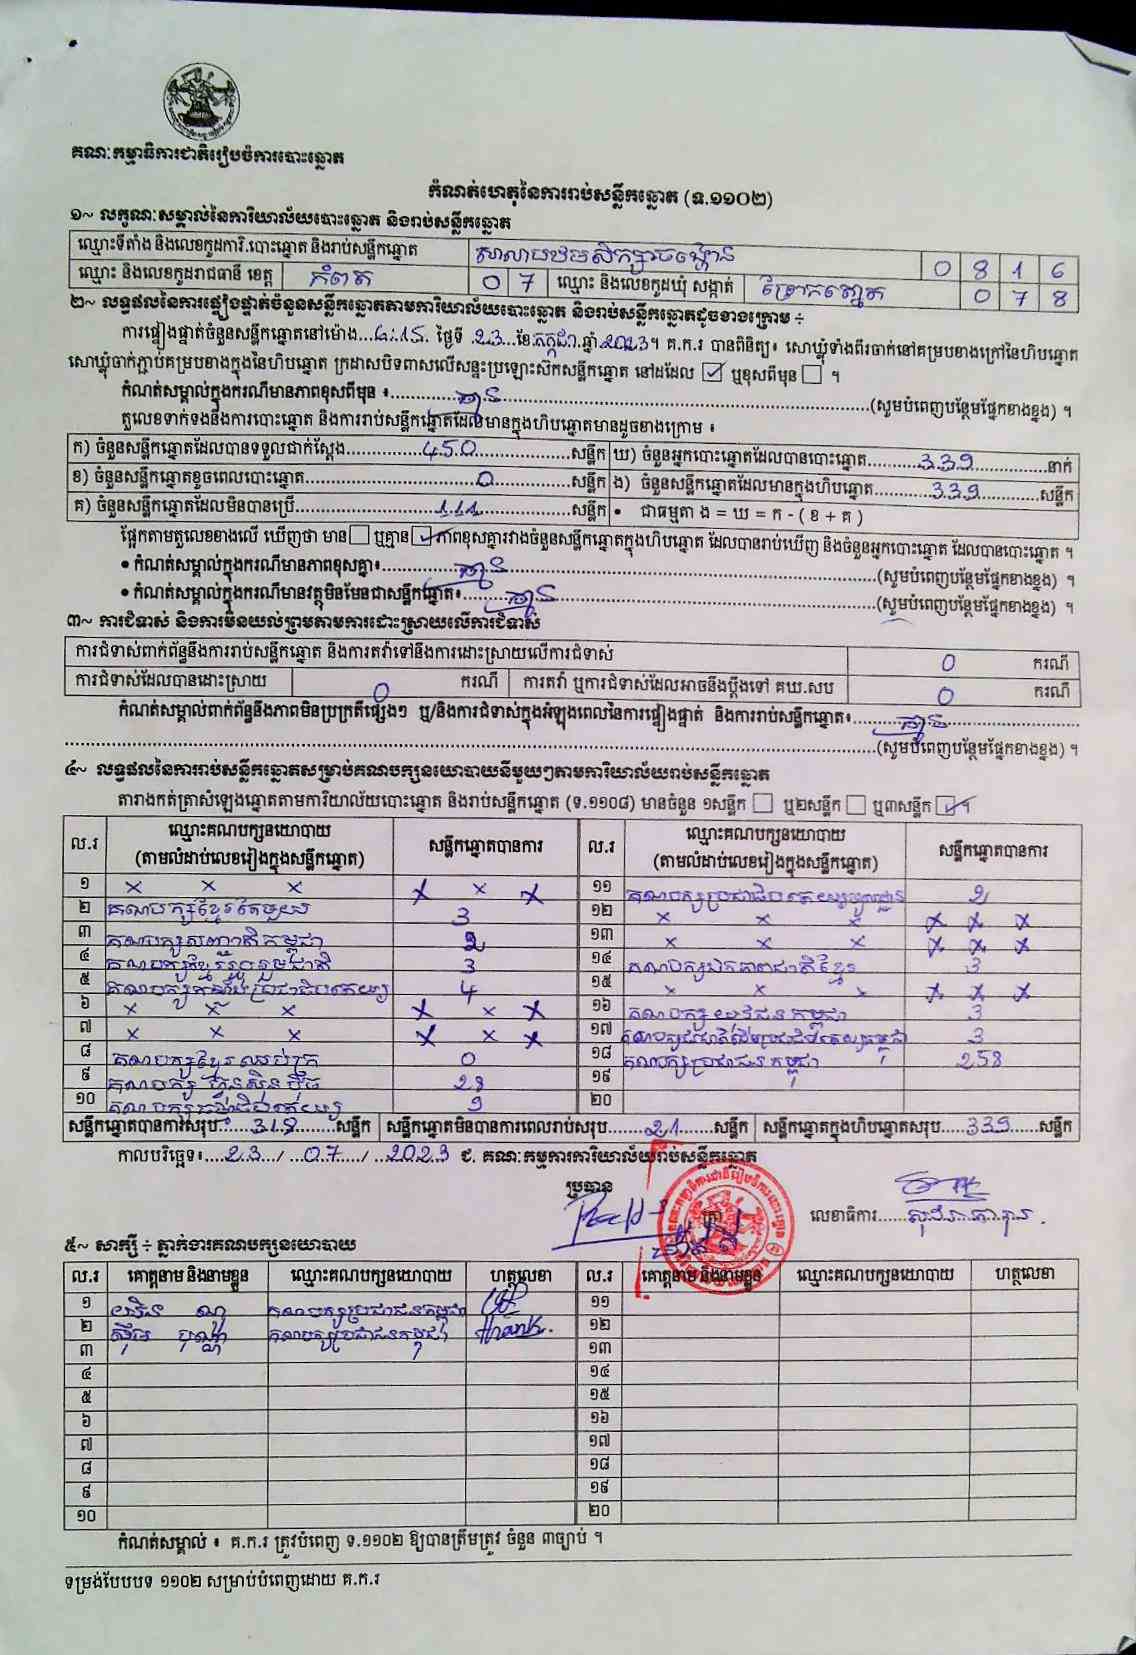 គណៈកម្មាធិការជាតិរៀបចំការបោះឆ្នោត
កំណត់ហេតុនៃការរាប់សន្លឹកឆ្នោត (ទ.១១០២)
១~ លក្ខណៈសម្គាល់នៃការិយាល័យបោះឆ្នោត និងរាប់សន្លឹកឆ្នោត
ឈ្មោះទីតាំង និងលេខកូដការិ.បោះឆ្នោត និងរាប់សន្លឹកឆ្នោត សាលាបឋមសិក្សា 0 8 1 6
ឈ្មោះ និងលេខកូដរាជធានី ខេត្ត កំពត 0 7 ឈ្មោះ និងលេខកូដឃុំ សង្កាត់ 0 7 8
២~ លទ្ធផលនៃការផ្ទៀងផ្ទាត់ចំនួនសន្លឹកឆ្នោតតាមការិយាល័យបោះឆ្នោត និងរាប់សន្លឹកឆ្នោតដូចខាងក្រោម ÷
ការផ្ទៀងផ្ទាត់ចំនួនសន្លឹកឆ្នោតនៅម៉ោង...6:15. ថ្ងៃទី .23...ខែ.កក្កដា.ឆ្នាំ.2023។ គ.ក.រ បានពិនិត្យ៖ សោឃ្លុំទាំងពីរចាក់នៅគម្របខាងក្រៅនៃហិបឆ្នោត
សោឃ្លុំចាក់ភ្ជាប់គម្របខាងក្នុងនៃហិបឆ្នោត ក្រដាសបិទពាសលើសន្ទះប្រឡោះសឹកសន្លឹកឆ្នោត នៅដដែល ☑ ឬខុសពីមុន ☐ ។
កំណត់សម្គាល់ក្នុងករណីមានភាពខុសពីមុន ៖.....គ្មាន.....(សូមបំពេញបន្ថែមផ្នែកខាងខ្នង) ។
តួលេខទាក់ទងនឹងការបោះឆ្នោត និងការរាប់សន្លឹកឆ្នោតដែលមានក្នុងហិបឆ្នោតមានដូចខាងក្រោម ៖
ក) ចំនួនសន្លឹកឆ្នោតដែលបានទទួលជាក់ស្តែង.....450.....សន្លឹក ឃ) ចំនួនអ្នកបោះឆ្នោតដែលបានបោះឆ្នោត.....339.....នាក់
ខ) ចំនួនសន្លឹកឆ្នោតខូចពេលបោះឆ្នោត.....0.....សន្លឹក ង) ចំនួនសន្លឹកឆ្នោតដែលមានក្នុងហិបឆ្នោត.....339.....សន្លឹក
គ) ចំនួនសន្លឹកឆ្នោតដែលមិនបានប្រើ.....111.....សន្លឹក • ជាធម្មតា ង = ឃ = ក - ( ខ + គ )
ផ្អែកតាមតួលេខខាងលើ ឃើញថា មាន ☐ ឬគ្មាន ☑ ភាពខុសគ្នារវាងចំនួនសន្លឹកឆ្នោតក្នុងហិបឆ្នោត ដែលបានរាប់ឃើញ និងចំនួនអ្នកបោះឆ្នោត ដែលបានបោះឆ្នោត ។
• កំណត់សម្គាល់ក្នុងករណីមានភាពខុសគ្នា៖.....គ្មាន.....(សូមបំពេញបន្ថែមផ្នែកខាងខ្នង) ។
• កំណត់សម្គាល់ក្នុងករណីមានវត្ថុមិនមែនជាសន្លឹកឆ្នោត៖.....គ្មាន.....(សូមបំពេញបន្ថែមផ្នែកខាងខ្នង) ។
៣~ ការជំទាស់ និងការមិនយល់ព្រមតាមការដោះស្រាយលើការជំទាស់
ការជំទាស់ពាក់ព័ន្ធនឹងការរាប់សន្លឹកឆ្នោត និងការតវ៉ាទៅនឹងការដោះស្រាយលើការជំទាស់ 0 ករណី
ការជំទាស់ដែលបានដោះស្រាយ 0 ករណី ការតវ៉ា ឬការជំទាស់ដែលអាចនឹងប្តឹងទៅ គឃ.សប 0 ករណី
កំណត់សម្គាល់ពាក់ព័ន្ធនឹងភាពមិនប្រក្រតីផ្សេងៗ ឬ/និងការជំទាស់ក្នុងអំឡុងពេលនៃការផ្ទៀងផ្ទាត់ និងការរាប់សន្លឹកឆ្នោត៖.....គ្មាន.....
.....(សូមបំពេញបន្ថែមផ្នែកខាងខ្នង) ។
៤~ លទ្ធផលនៃការរាប់សន្លឹកឆ្នោតសម្រាប់គណបក្សនយោបាយនីមួយៗតាមការិយាល័យរាប់សន្លឹកឆ្នោត
តារាងកត់ត្រាសំឡេងឆ្នោតតាមការិយាល័យបោះឆ្នោត និងរាប់សន្លឹកឆ្នោត (ទ.១១០៨) មានចំនួន ១សន្លឹក ☐ ឬ២សន្លឹក ☐ ឬ៣សន្លឹក ☑ ។
ល.រ ឈ្មោះគណបក្សនយោបាយ (តាមលំដាប់លេខរៀងក្នុងសន្លឹកឆ្នោត) សន្លឹកឆ្នោតបានការ ល.រ ឈ្មោះគណបក្សនយោបាយ (តាមលំដាប់លេខរៀងក្នុងសន្លឹកឆ្នោត) សន្លឹកឆ្នោតបានការ
១ × × × × × × ១១ គណបក្សប្រជាធិបតេយ្យមូលដ្ឋាន 2
២ គណបក្សខ្មែរតែមួយ 3 ១២ × × × × × ×
៣ គណបក្សសញ្ជាតិកម្ពុជា 2 ១៣ × × × × × ×
៤ គណបក្សខ្មែររួបរួមជាតិ 3 ១៤ គណបក្សឯកភាពជាតិខ្មែរ 3
៥ គណបក្សកម្លាំងប្រជាធិបតេយ្យ 4 ១៥ × × × × × ×
៦ × × × × × × ១៦ គណបក្សយុវជនកម្ពុជា 3
៧ × × × × × × ១៧ 3
៨ គណបក្សខ្មែរឈប់ក្រ 0 ១៨ គណបក្សប្រជាជនកម្ពុជា 258
៩ គណបក្សហ្វ៊ុនស៊ិនប៉ិច 28 ១៩
១០ ២០
សន្លឹកឆ្នោតបានការសរុប:.....318.....សន្លឹក សន្លឹកឆ្នោតមិនបានការពេលរាប់សរុប.....21.....សន្លឹក សន្លឹកឆ្នោតក្នុងហិបឆ្នោតសរុប.....339.....សន្លឹក
កាលបរិច្ឆេទ៖....23..../...07..../...2023 ជ. គណៈកម្មការការិយាល័យរាប់សន្លឹកឆ្នោត
ប្រធាន
ត្រា
លេខាធិការ
៥~ សាក្សី ÷ ភ្នាក់ងារគណបក្សនយោបាយ
ល.រ គោត្តនាម និងនាមខ្លួន ឈ្មោះគណបក្សនយោបាយ ហត្ថលេខា ល.រ គោត្តនាម និងនាមខ្លួន ឈ្មោះគណបក្សនយោបាយ ហត្ថលេខា
១ គណបក្សប្រជាជនកម្ពុជា ១១
២ គណបក្សប្រជាជនកម្ពុជា ១២
៣ ១៣
៤ ១៤
៥ ១៥
៦ ១៦
៧ ១៧
៨ ១៨
៩ ១៩
១០ ២០
កំណត់សម្គាល់ ៖ គ.ក.រ ត្រូវបំពេញ ទ.១១០២ ឱ្យបានត្រឹមត្រូវ ចំនួន ៣ច្បាប់ ។
ទម្រង់បែបបទ ១១០២ សម្រាប់បំពេញដោយ គ.ក.រ